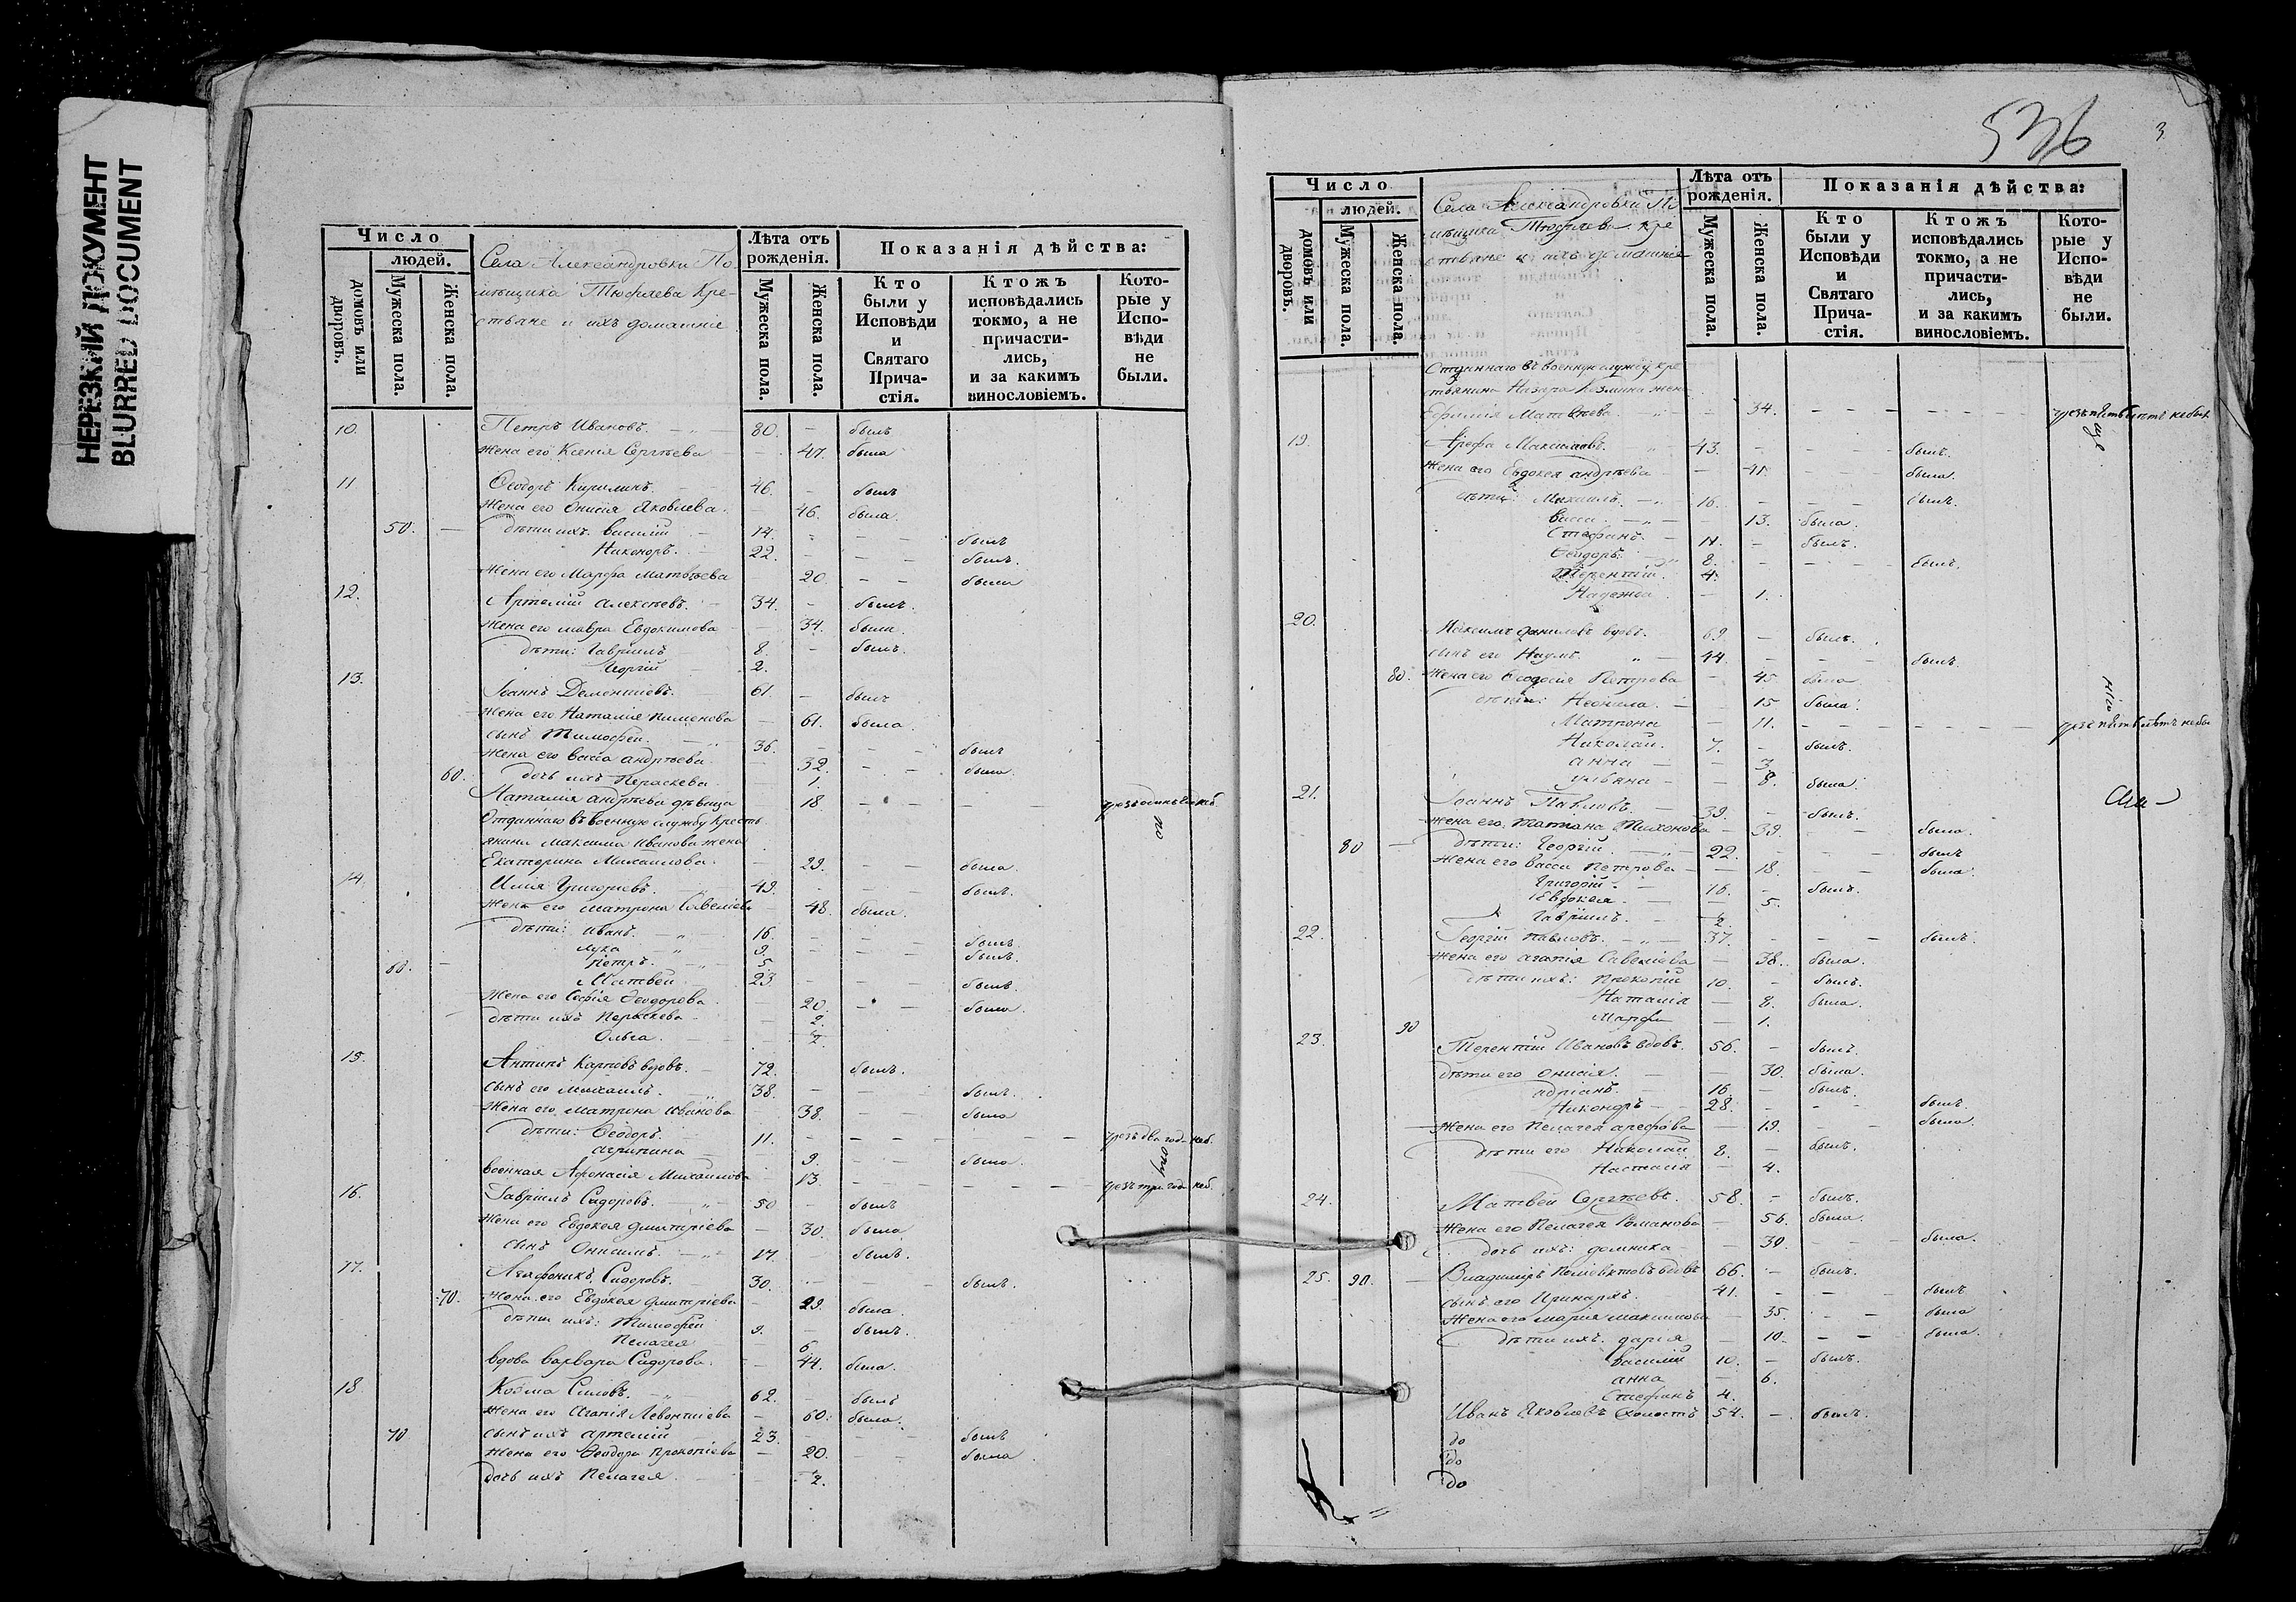 НЕРЕЗКИЙ ДОКУМЕНТ
BLURRED DOCUMENT
Число
людей.
домовъ или дворовъ.
Мужеска пола.
Женска пола.
Села Александровки По
мѣщика Тюфяева Кре-
стьяне и ихъ домашніе
Лѣта отъ рожденія.
Мужеска пола.
Женска пола.
Показанія дѣйства:
Кто были у Исповѣди и Святаго Прича-стія.
Ктожъ исповѣдались токмо, а не причасти-лись, и за какимъ винословіемъ.
Кото-рые у Испо-вѣди не были.
10. Петръ Ивановъ. 80. - былъ
Жена его Ксенія Сергѣева 47. была
11 Ѳеодоръ Кирилинъ. 46. - былъ
Жена его Онисія Яковлева. 46. была.
50. - дѣти ихъ Василій 14. - - былъ
Никоноръ. 22. - - былъ.
Жена его Марѳа Матвѣева 20. - - была
12. Артемій Алексѣевъ. 34. - былъ.
Жена его Мавра Евдокимова 34. была.
дѣти: Гавріилъ 8. - былъ.
Георгій 2.
13. Іоаннъ Дементіевъ. 61. - былъ
Жена его Наталія Пименова 61. была
сынъ Тимоѳей. 36. - - былъ
Жена его Васса Андрѣева 32. - - была.
60. дочь ихъ Параскева. 1.
Наталія Андрѣева дѣвица 18 - - -
Отданнаго въ военную службу кресть
янина Максима Иванова жена
Екатерина Михаилова. 29. - - была.
14. Илія Григорьевъ. 49. - - былъ.
Жена его Матрона Савеліева 48. была.
дѣти: Иванъ. 16. - - былъ.
Лука 9. - - былъ.
60. - Петръ. 5
Матвей 23 - - былъ.
Жена его Софія Ѳеодорова 20. - - была.
дѣти ихъ Параскева 2.
Ольга.
15. Антипъ Карповъ вдовъ. 72. былъ.
сынъ его Михаилъ. 38. - - былъ.
Жена его Матрона Иванова 38. - - была
дѣти: Ѳеодоръ. 11. - - -
Агрипина 9. - - была.
военная Аѳонасія Михаилова 13. - - -
16. Гавріилъ Сидоровъ. 50 - былъ
Жена его Евдокея Дмитріева 30. была
сынъ Онисимъ. 17. - былъ.
17. Агаѳоникъ Сидоровъ. 30. - - былъ.
70. Жена его Евдокея Дмитріева 29. была.
дѣти ихъ: Тимоѳей 9. - былъ.
Пелагея 6
вдова Варвара Сидорова. 44. была.
18 Козма Силовъ. 62. - былъ
Жена его Агапія Левонтіева 60. была.
70 сынъ ихъ Артемій 23. - - былъ
Жена его Ѳеодора Прокопіева 20. - - была
дочь ихъ Пелагея.
536
3
Число
людей.
домовъ или дворовъ.
Мужеска пола.
Женска пола.
Села Александровки По
мѣщика Тюфяева кре
стьяне и ихъ домашніе
Лѣта отъ рожденія.
Мужеска пола.
Женска пола.
Показанія дѣйства:
Кто были у Исповѣди и Святаго Прича-стія.
Ктожъ исповѣдались токмо, а не причасти-лись, и за какимъ винословіемъ.
Кото-рые у Испо-вѣди не были.
Отданнаго въ военную службу кре
стьянина Назара Козмина жена
Матвѣева 34. - - - -
19. Арефа Максимовъ. 43. - - - былъ.
Жена его Евдокея Андрѣева 41. - - была.
дѣти: Михаилъ. 16. - - - былъ.
Васса. 13. была.
Стефанъ. 11. - былъ.
Ѳеодоръ. 8. - - - былъ.
Терентій. 4.
Надежда 1.
20. Максимъ Даниловъ вдовъ. 69. - былъ.
сынъ его Наумъ. 44. - - былъ.
80. Жена его Ѳеодосія Петрова 45. была
дѣти: Неонила. 15 была.
Матрона 11. - - - -
Николай. 7. - былъ.
Анна 3
Ульяна 8. была.
21. Іоаннъ Павловъ. 39. - былъ.
Жена его Татіана Тихонова 39. - - была.
80 - дѣти: Георгій. 22. - - былъ
Жена его Васса Петрова 18. - - была.
Григорій. 16. - былъ.
Евдокея 5.
Гавріилъ.
22. Георгій Павловъ. 37. - - - былъ.
Жена его Агапія Савеліева 38. была.
дѣти ихъ: Прокопій 10. - былъ.
Наталія 8. была.
90 Марѳа 1.
23. Терентій Ивановъ вдовъ. 56. - былъ.
дѣти его Онисія. 30. была.
Адріанъ 16. - былъ.
Никоноръ 28. - - былъ
Жена его Пелагея Арефова 19. - - была.
дѣти его Николай 8. - былъ.
Настасія 4.
24. Матвей Сергѣевъ. 58. - былъ.
Жена его Пелагея Романова 56. была.
дочь ихъ: Домника 30. - - была.
25. 90. - Владиміръ Поліевктовъ вдовъ 66. - былъ.
сынъ его Иринархъ. 41. - - былъ
Жена его Марія Максимова 35. - - была
дѣти ихъ: Дарія 10. - - была.
Василій 10. - былъ.
Анна 6.
Стефанъ 4.
Иванъ Яковлевъ Холостъ 54. - былъ.
до
до
до